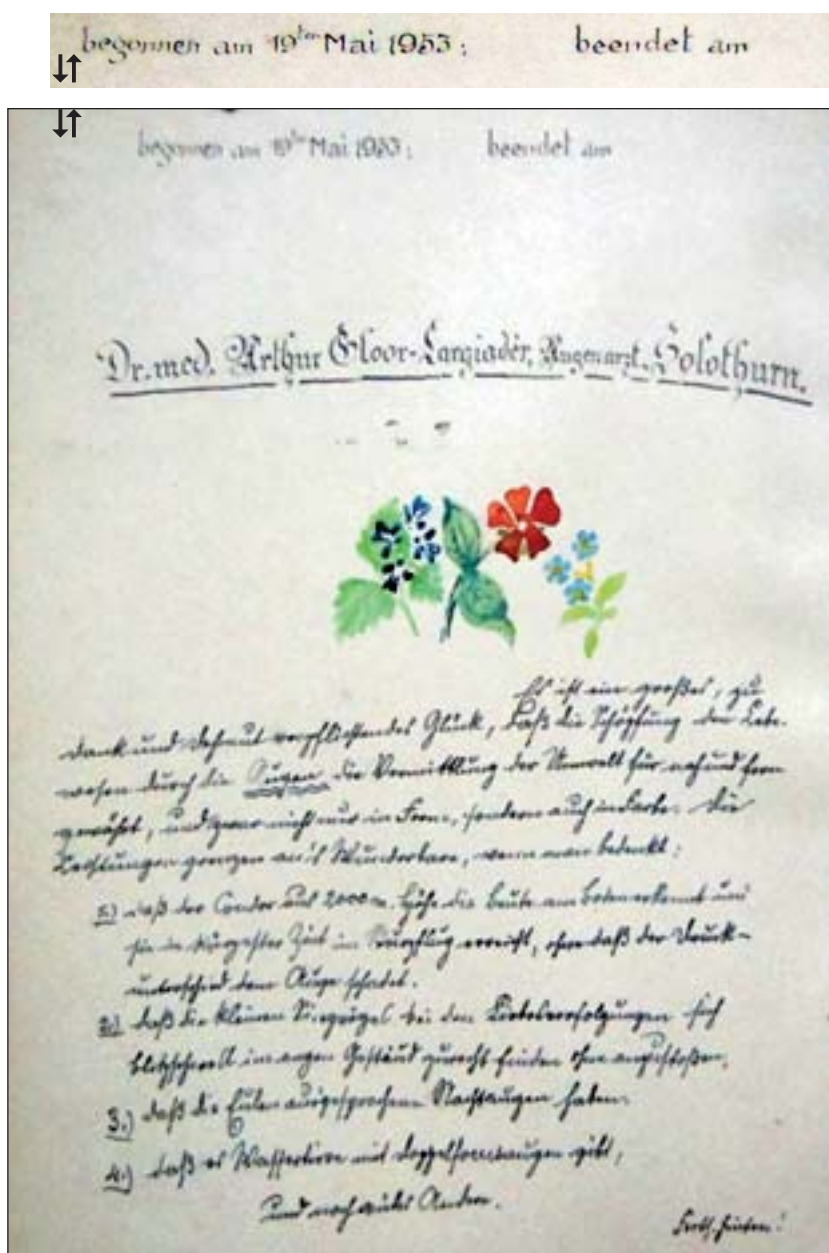 begonnen am 19ten Mai 1953; beendet am
begonnen am 19ten Mai 1953; beendet am
Dr. med. Arthur Gloor-Largiadèr, Augenarzt, Solothurn.
Es ist ein großes, zu
Dank und Demut verpflichtendes Glück, daß die Schöpfung den Lebe-
wesen durch die Augen die Vermittlung der Umwelt für nah und fern
gewährt, und zwar nicht nur in Form, sondern auch in Farbe. Die
Leistungen grenzen an's Wunderbare, wenn man bedenkt:
1.) daß der Condor aus 2000 m. Höhe die Beute am Boden erkennt und
sie in kürzester Zeit im Sturzflug erreicht, ohne daß der Druck-
unterschied dem Auge schadet.
2.) daß die kleinen Singvögel bei den Liebesverfolgungen sich
blitzschnell im engen Geäst zurecht finden ohne anzustoßen.
3.) daß die Eulen ausgesprochene Nachtaugen haben.
4.) daß es Wassertiere mit Doppelformaugen gibt,
und noch vieles Andere.